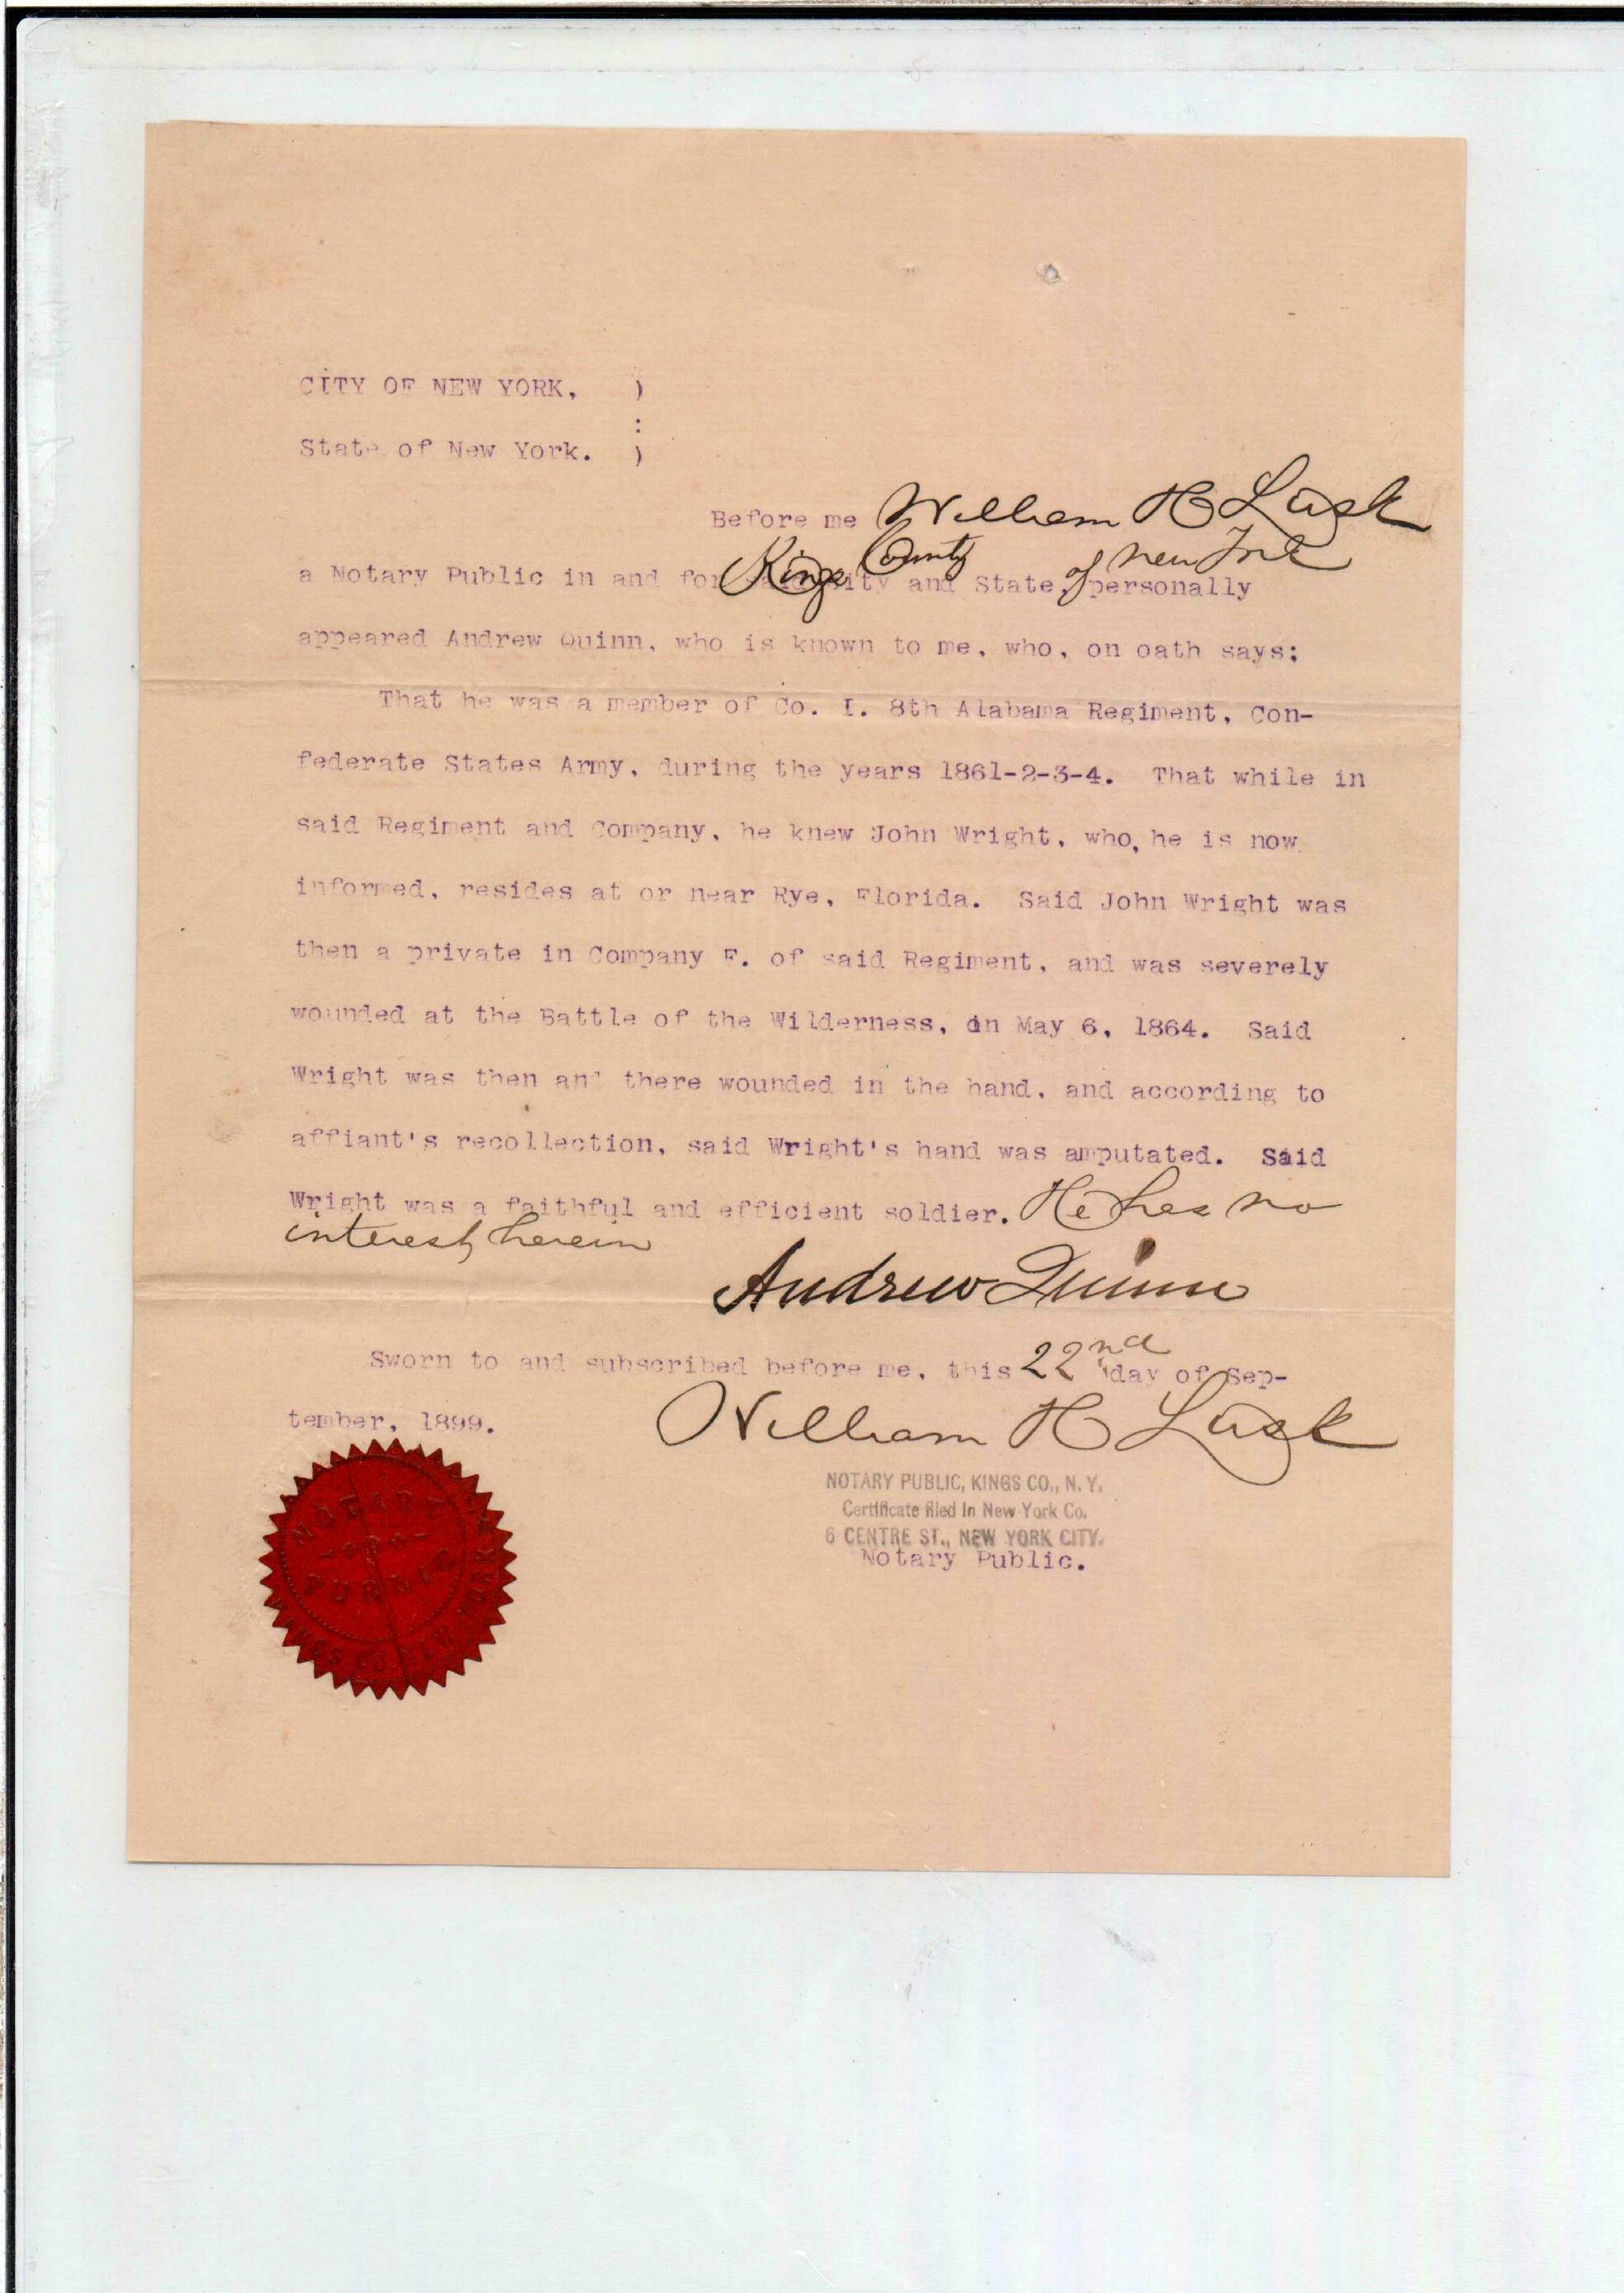 CITY OF NEW YORK, )
:
State of New York. )
Before me William H Lusk
Kings County of New York
a Notary Public in and for said City and State, personally
appeared Andrew Quinn, who is known to me, who, on oath says;
That he was a member of Co. I. 8th Alabama Regiment, Con-
federate States Army, during the years 1861-2-3-4. That while in
said Regiment and Company, he knew John Wright, who, he is now
informed, resides at or near Rye, Florida. Said John Wright was
then a private in Company F. of said Regiment, and was severely
wounded at the Battle of the Wilderness, on May 6, 1864. Said
Wright was then and there wounded in the hand, and according to
affiant's recollection, said Wright's hand was amputated. Said
Wright was a faithful and efficient soldier. He has no
interest herein
Andrew Quinn
Sworn to and subscribed before me, this 22nd day of Sep-
tember, 1899.
William H Lusk
NOTARY PUBLIC, KINGS CO., N. Y.
Certificate filed in New York Co.
6 CENTRE ST., NEW YORK CITY.
Notary Public.
NOTARY
PUBLIC
KINGS CO. NEW YORK